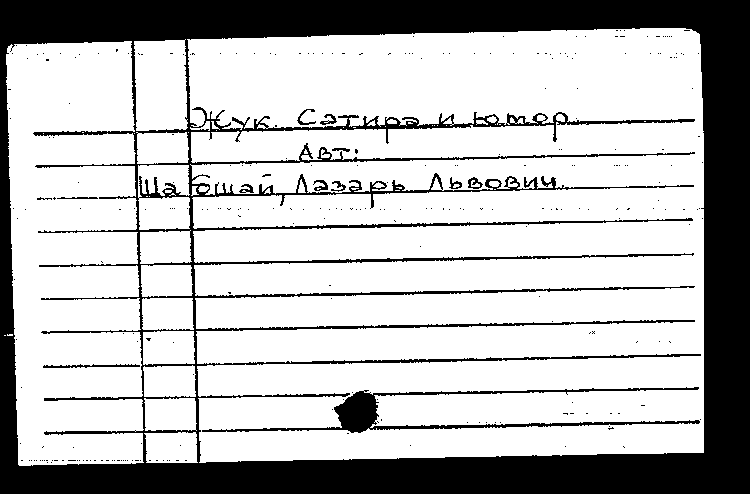 Жук. Сатира и юмор
Авт:
Шабшай, Лазарь Львович